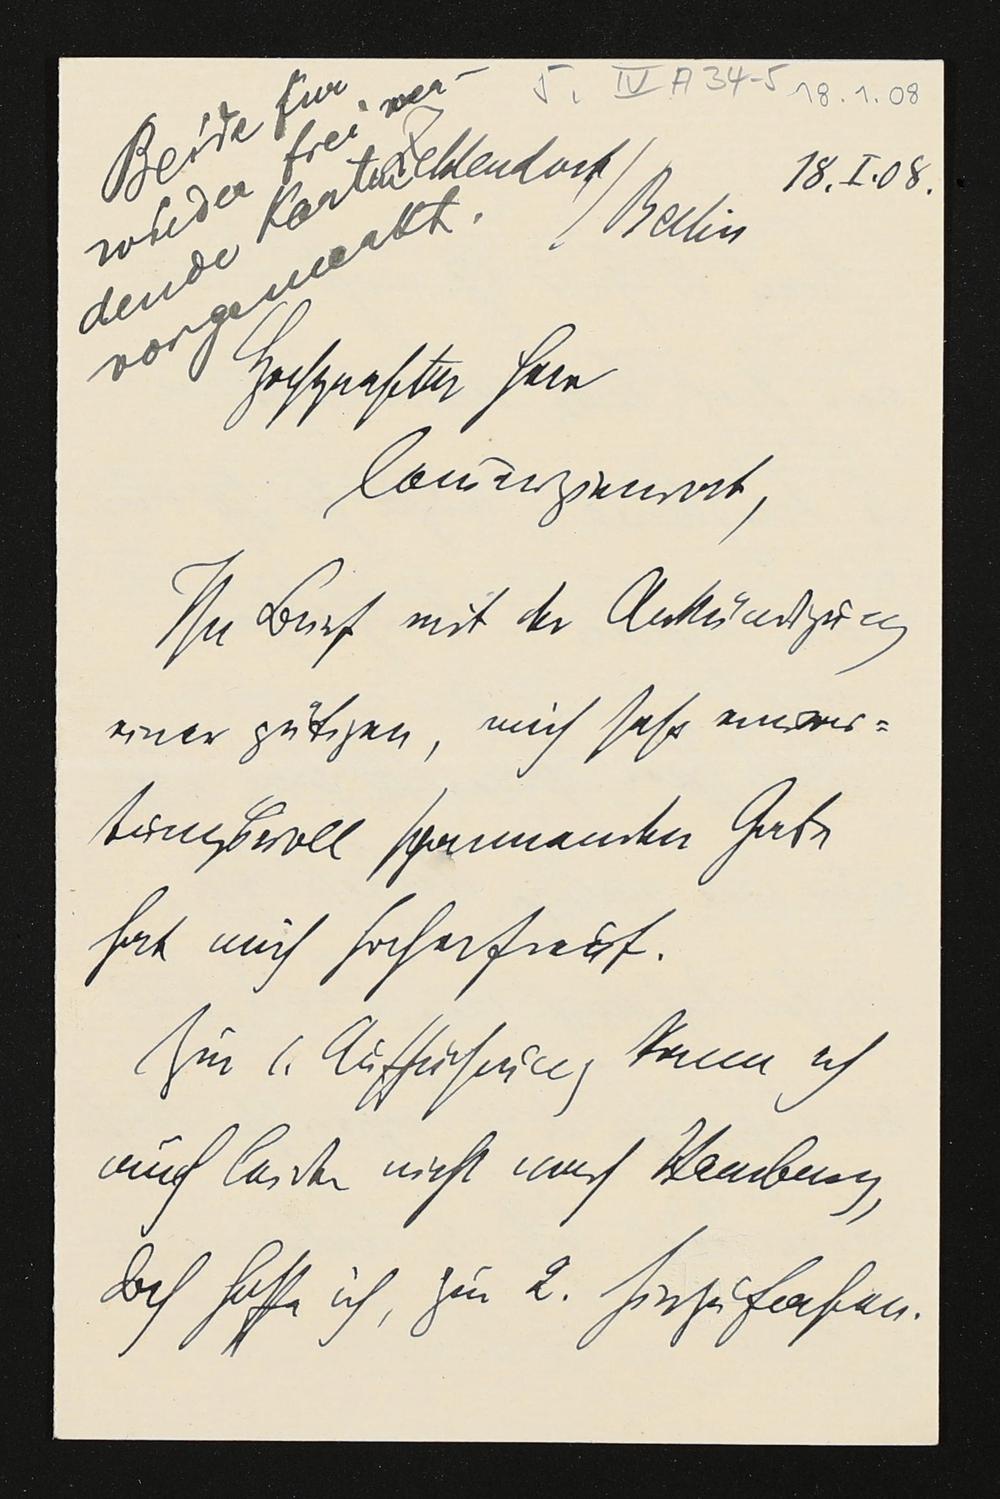 5. IV A 34-5 18.1.08
Beide für
wieder frei wer-
dende Karten
vorgemerkt.
Zehlendorf/
/Berlin
18.I.08.
Hochgeehrter Herr
Commerzienrat,
Ihr Brief mit der Ankündigung
einer gütigen, mich sehr erwar=
tungsvoll spannenden Gabe
hat mich hocherfreut.
Zur 1. Aufführung kann ich
auch leider nicht nach Hamburg,
doch hoffe ich, zur 2. hinzufahren.